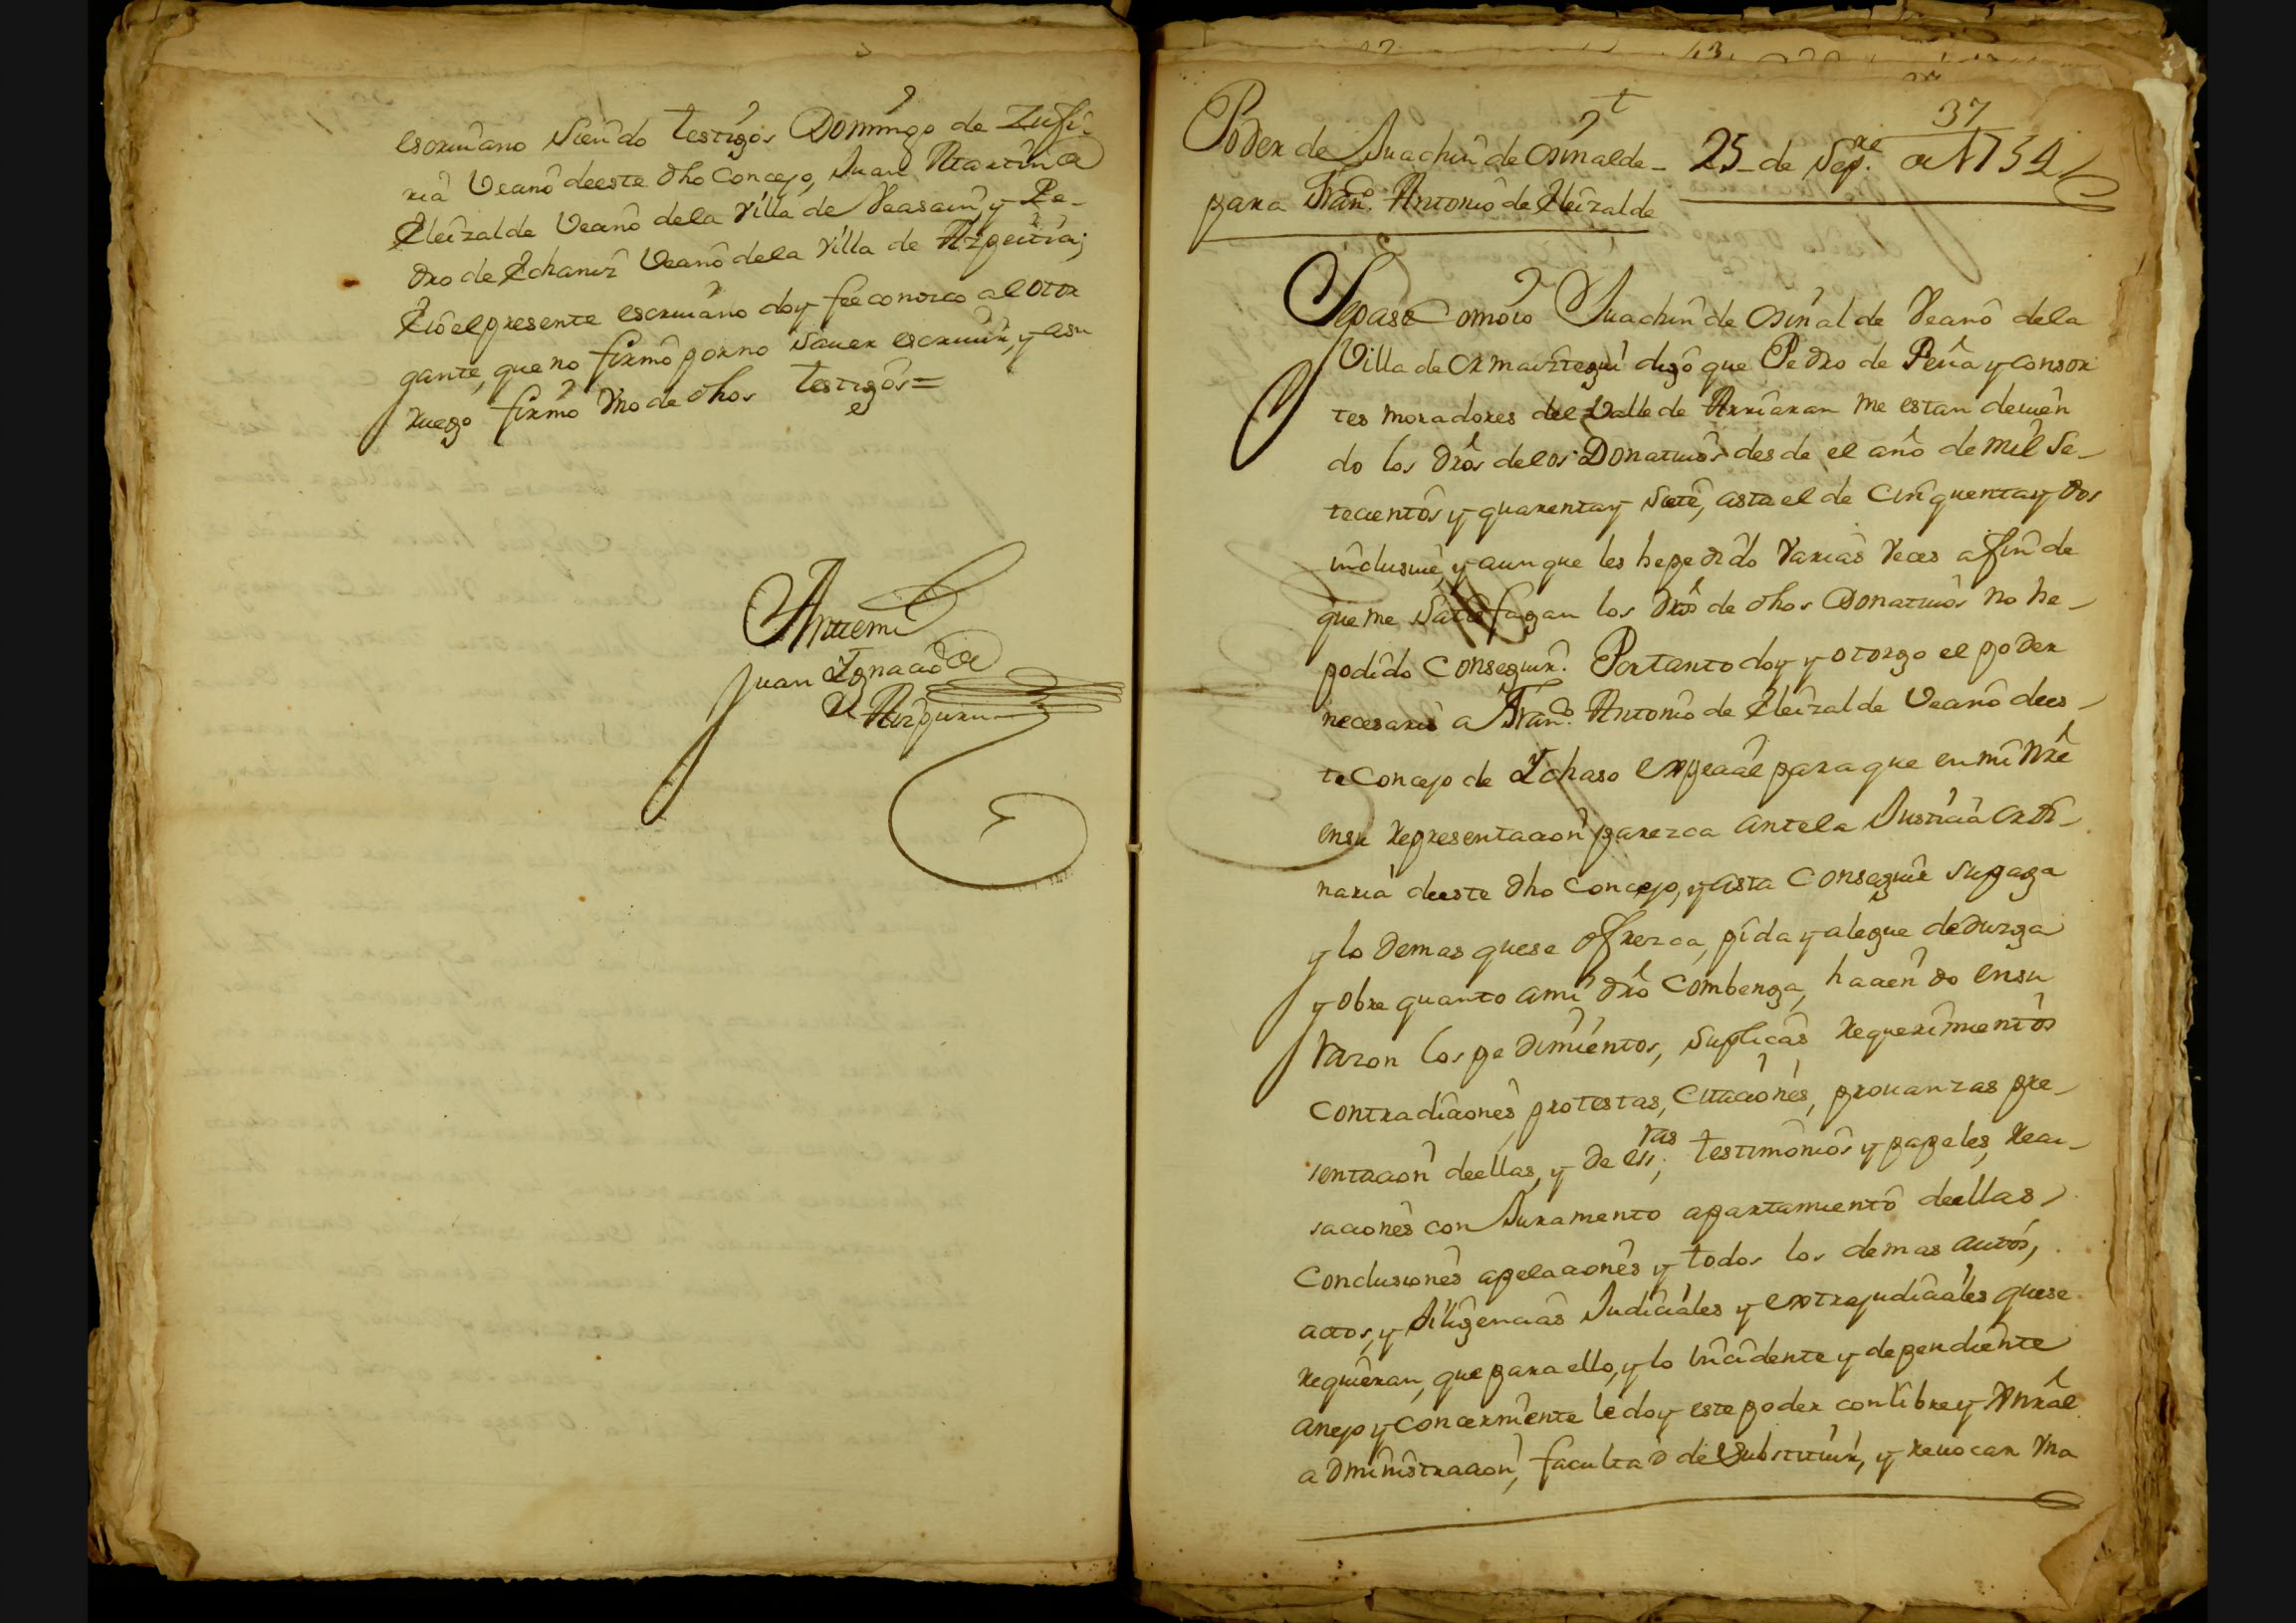 escriuano siendo testigos Domingo de Zufi-
ria Veano deeste dho Concejo, Juan Martin de
Eleizalde Veano dela Villa de Veasain, y Pe-
dro de Echaniz Veano dela Villa de Azpeitia;
E io el presente escriuano doy fee conozco al otor
gante, que no firmó por no sauer escriuir, y asu
ruego firmó Vno de dhos testigos=
Antemi
Juan Ignacio de
Aizpuru
37
Poder de Juachin de Osinalde-
25-de Sepre. de 1754
para Franco. Antonio de Eleizalde
Sepase Comoio Juachin de Osinalde Veano dela
Villa de Ormaiztegui digo que Pedro de Peña y consor
tes moradores del Valle de Arriaran me estan deuien
do los dros delos Donatiuos desde el año de mil Se-
tecientos y quarentay Siete, asta el de Cinquentay dos
inclusiue, y aunque les he pedido Varias Veces afin de
que me Satisfagan los dros de dhos Donatiuos no he-
podido Conseguir. Portanto doy y otorgo el poder
necesario a Franco. Antonio de Eleizalde Veano dees-
te Concejo de Ichaso expecial para que en mi Nre
ensu representacion parezca antela Justicia Ordi-
naria deeste dho Concejo, y asta Conseguir supaga
y lo demas quese ofrezca, pida y alegue deduzga
y obre quanto ami dro Combenga, haciendo ensu
razon los pedimientos, Suplicas requerimientos
Contradiciones protestas, Citaciones, prouanzas pre-
sentacion deellas, y de essras. testimonios y papeles, recu-
saciones con Juramento apartamiento deellas
Conclusiones apelaciones y todos los demas autos,
actos, y diligencias Judiciales y extrajudiciales quese
requieran, que para ello, y lo incidente y dependiente
anejo y Concerniente le doy este poder con libre y Gnral
administracion, facultad de Substituir, y reuocar Vna